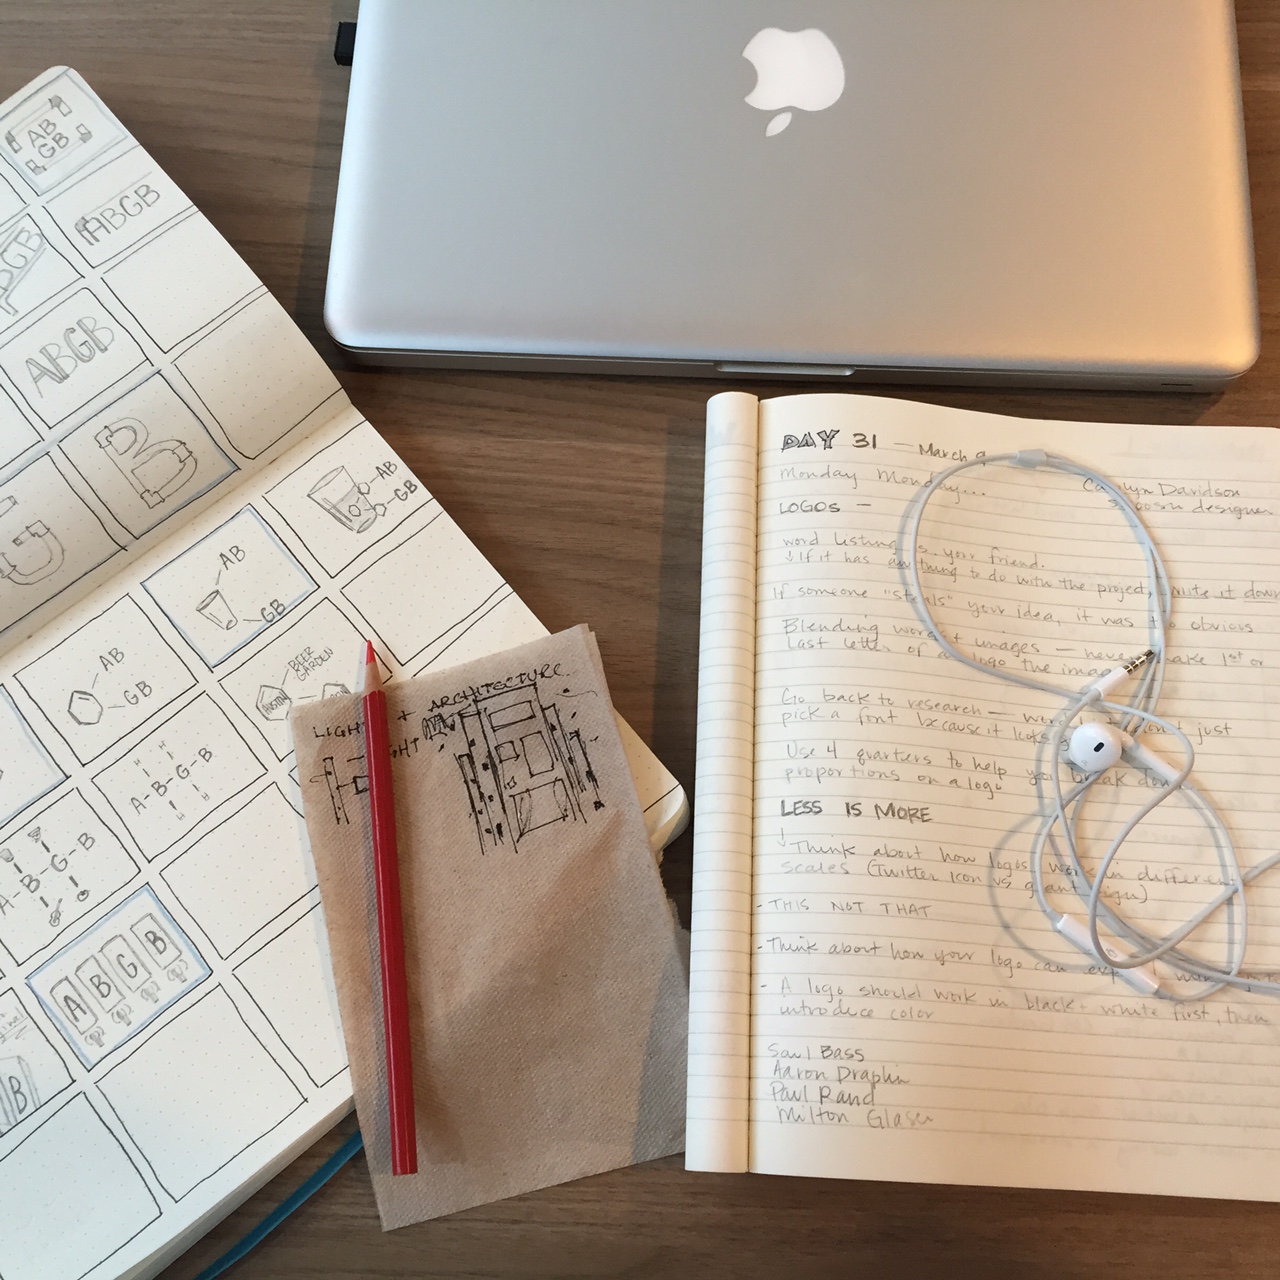 AB
GB
ABGB
GB
ABGB
B
G
AB
GB
AB
GB
AB
GB
BEER
GARDEN
AUSTIN
H H
A-B-G-B
H H
A-B-G-B
A B G B
B
LIGHT + ARCHITECTURE
DAY 31 — March 9
Monday Monday...
Davidson
designer
LOGOS —
word listing is your friend.
↓ If it has anything to do with the project, write it down
If someone "steals" your idea, it was too obvious
Blending words + images — never make 1st or
last letter of a logo the image
Go back to research — just
pick a font because it looks
Use 4 quarters to help you break down
proportions on a logo
LESS IS MORE
↓ Think about how logos work in different
scales (Twitter Icon vs giant sign)
- THIS NOT THAT
- Think about how your logo can
- A logo should work in black + white first, then
introduce color
Saul Bass
Aaron Draplin
Paul Rand
Milton Glaser